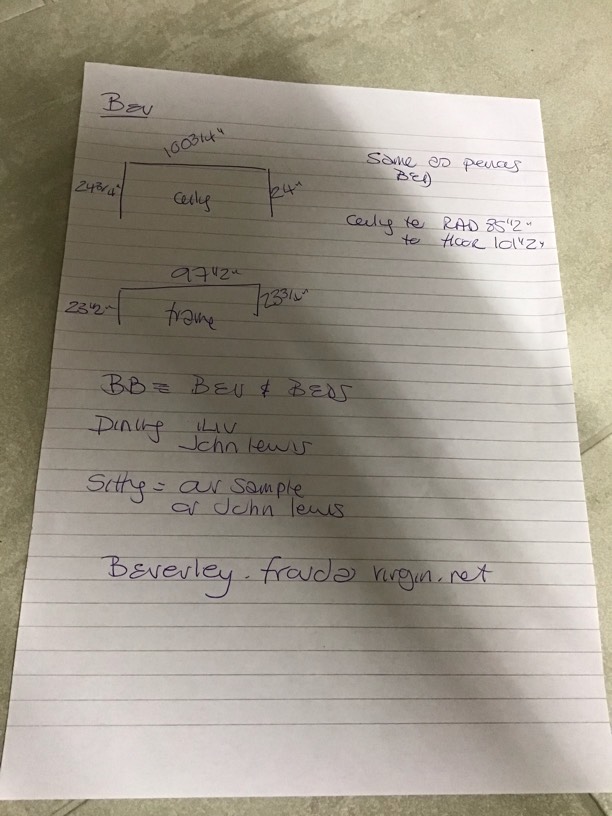 BEV
100 3/4"
24 3/4"
Ceilg
24"
Same as
BED
Ceilg to RAD 85 1/2"
to floor 101 1/2"
97 1/2"
23 1/2"
frame
BB = BEV & BEDS
Dining
John Lewis
Sittg = our sample
or John Lewis
Beverley.
virgin.net